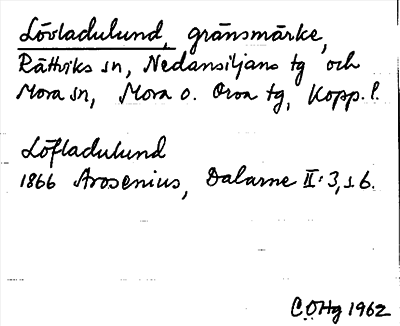 Lövladulund, gränsmärke,
Rättviks sn, Nedansiljans tg och
Mora sn, Mora o. Orsa tg, Kopp. l.
Löfladulund
1866 Arosenius, Dalarne II: 3, s 6.
C.O.Hg 1962